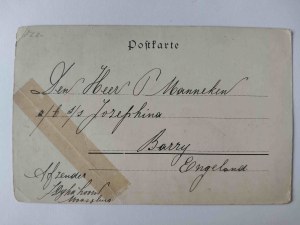 Postkarte
Den Heer P Manneken
a/b s/s Josephina
Barry
Engeland
Afzender